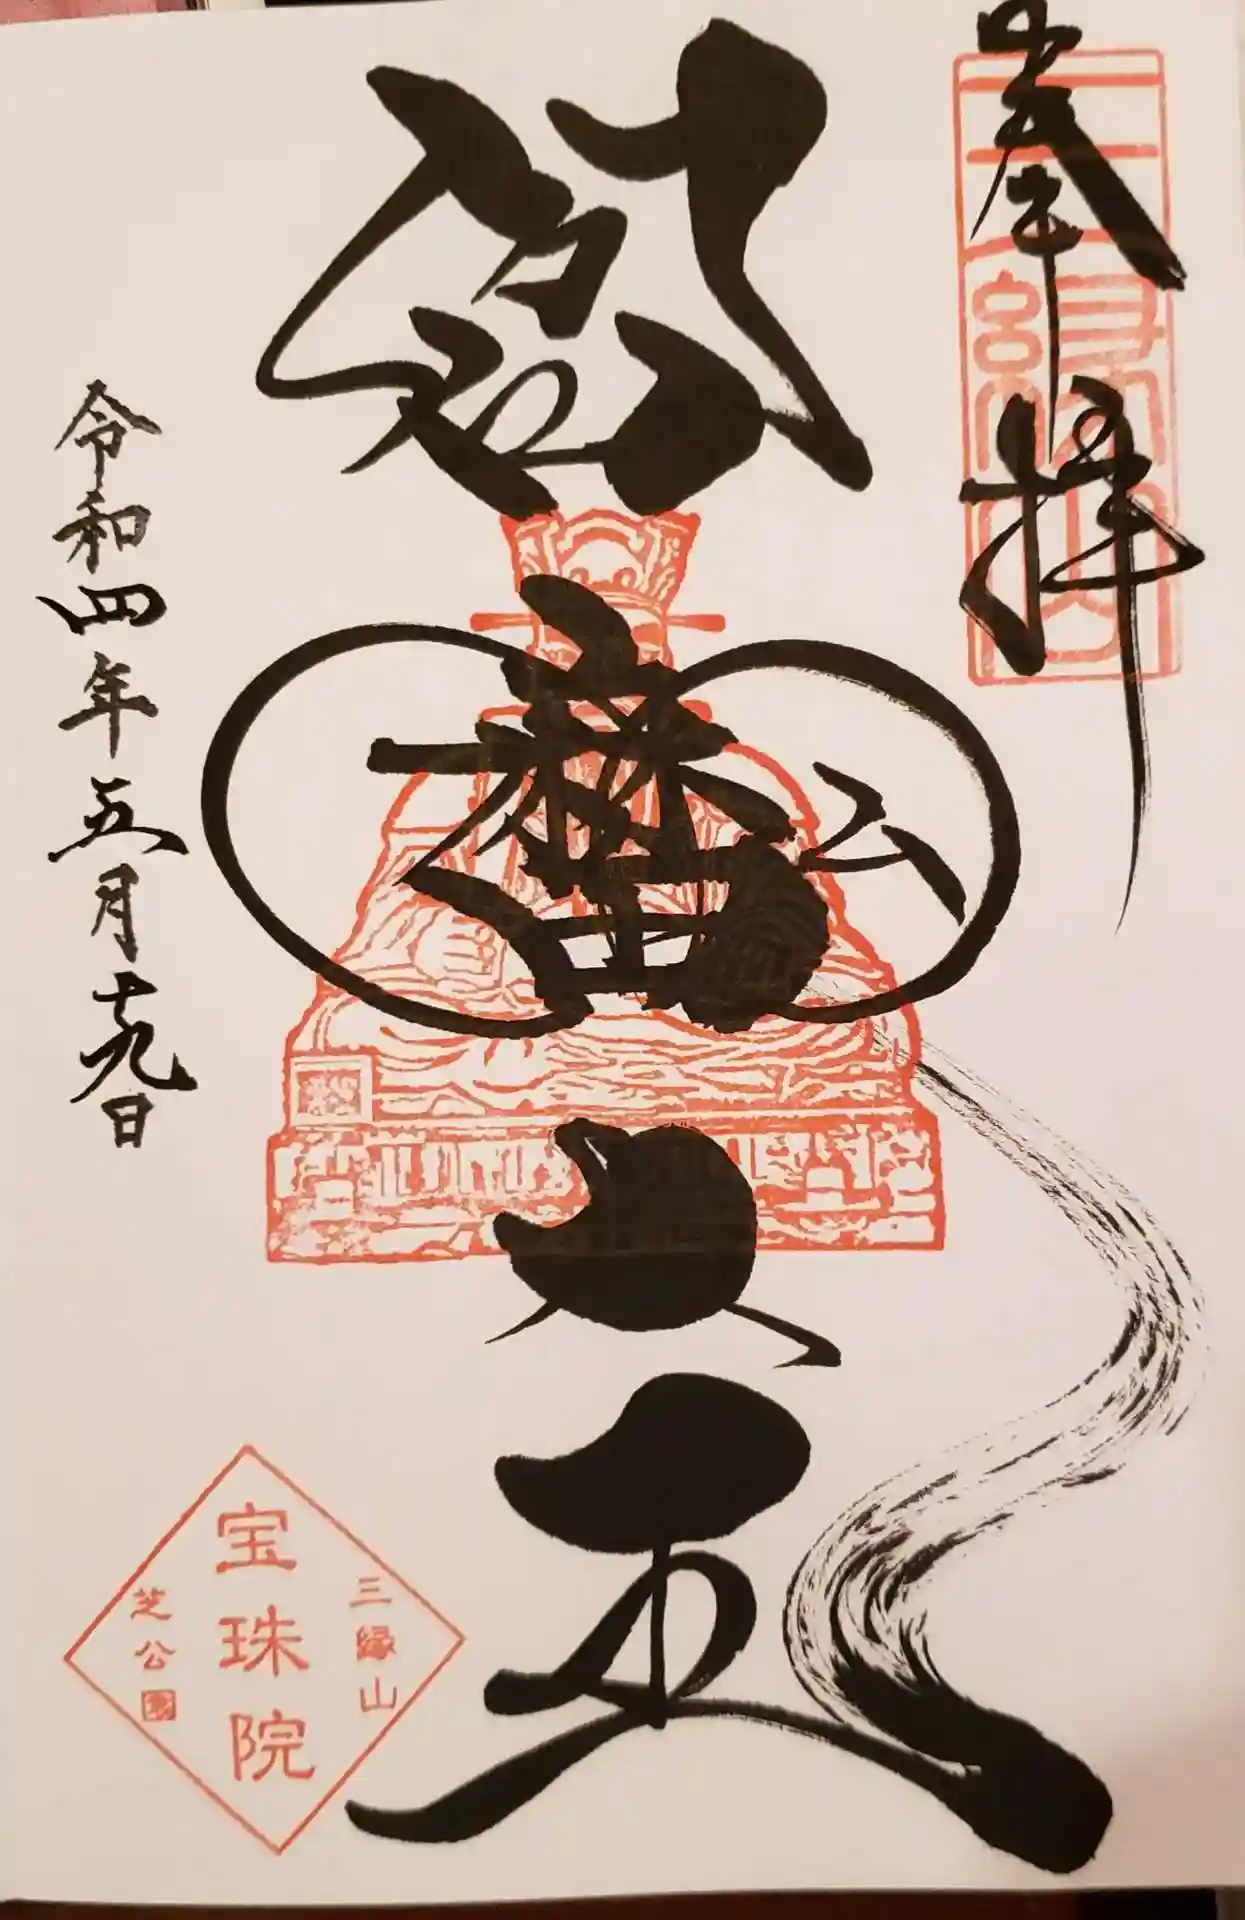 奉拝
三縁山
閻魔大王
令和四年五月十九日
三縁山
宝珠院
芝公園